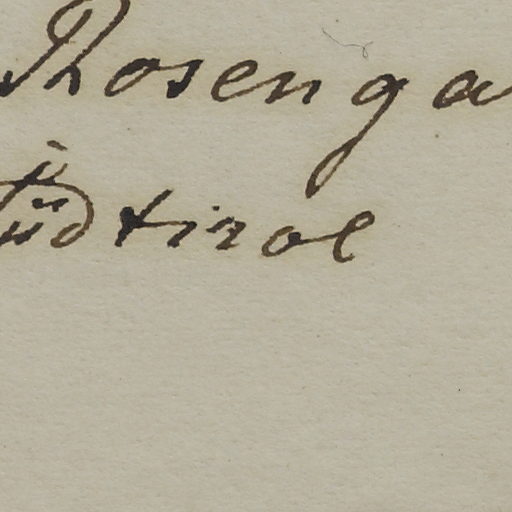 Rosenga
üdtirol